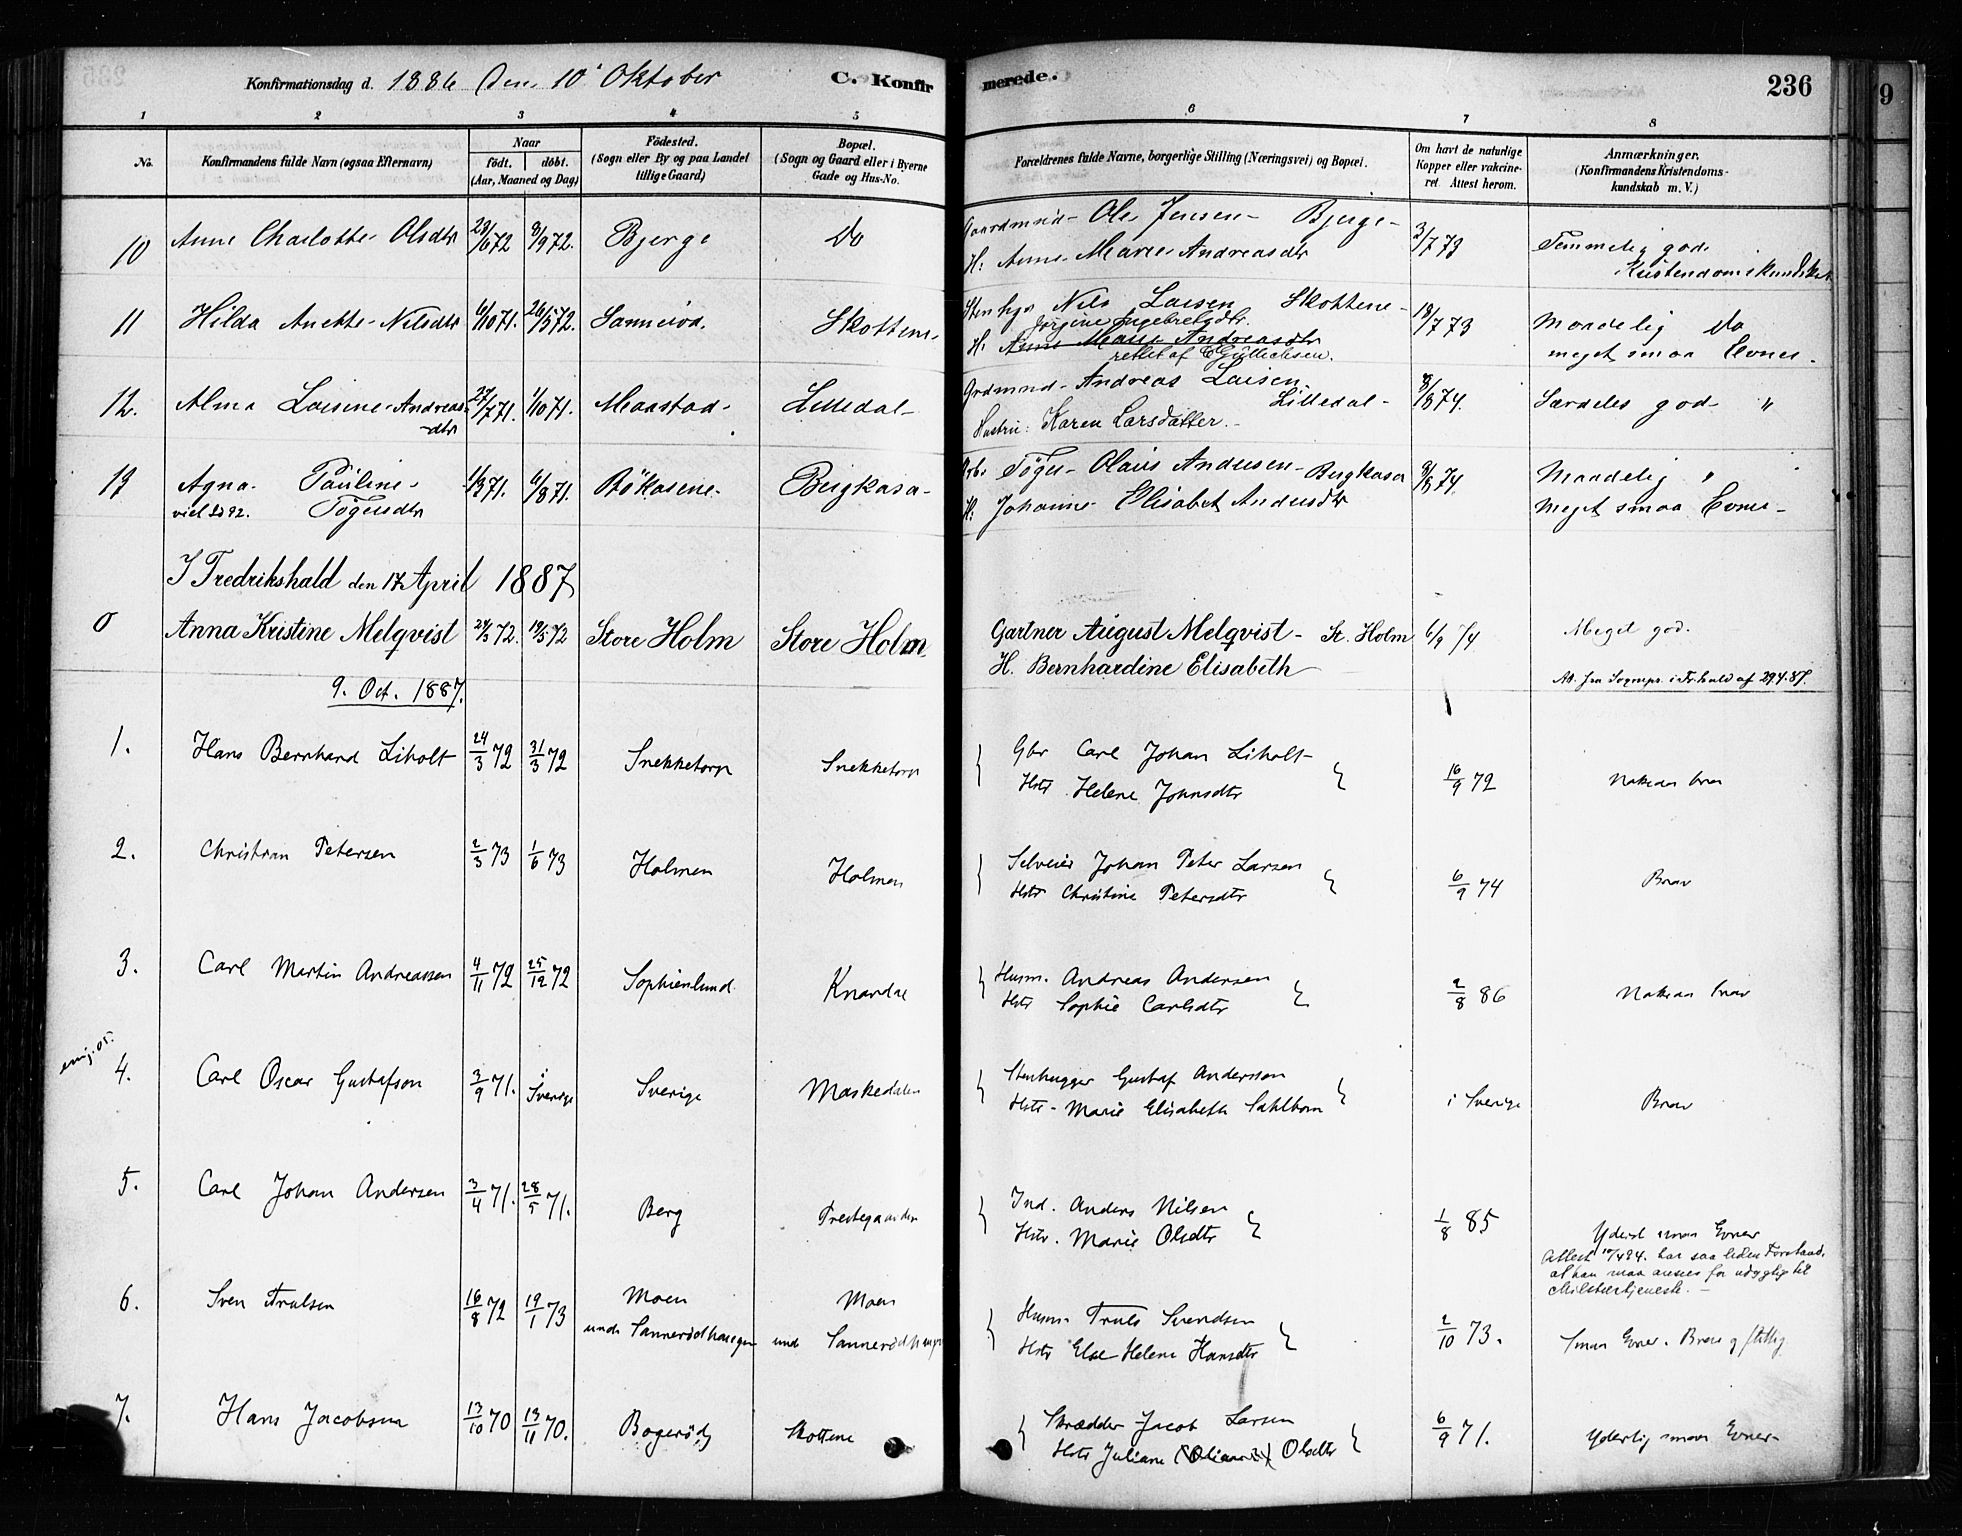 Konfirmationsdag d. 1886 den 10 Oktober C. Konfirmerede. 236
1 2 3 4 5 6 7 8
No. Konfirmandens fulde Navn (ogsaa Efternavn) Naar født, døbt. (Aar, Maaned og Dag) Födested. (Sogn eller By og paa Landet tillige Gaard) Bopæl. (Sogn og Gaard eller i Byerne Gade og Hus-No. Forældrenes fulde Navne, borgerlige Stilling (Næringsvei) og Bopæl. Om havt de naturlige Kopper eller vakcineret. Attest herom. Anmærkninger. (Konfirmandens Kristendomskundskab m. V.)
10 Anne Charlotte Olsdtr 28/6 72 8/9 72. Bjerge Do Gaardmnd- Ole Jensen- Bjerge- 3/7 73 Temmelig god
H: Anne Marie Andreasdtr Kristendomskundskab
11 Hilda Anette Nilsdtr 6/10 71. 26/5 72. Sanneröd. Skottene Stenhgr Nils Larsen Skottene- 18/7 73 Maadelig do
Jörgine Ingebretsdtr.
H: Anne Marie Andreasdtr meget smaa Evner.
rettet af
12. Alma Laisine Andreasdtr 27/7 71. 1/10 71. Maastad- Lilledal- Grdmnd- Andreas Larsen Lilledal- 8/8 74. Særdeles god- "
Hustru: Karen Larsdatter.
13 Agna Pauline 1/3 71. 6/8 71. Bökasene- Bergkasa- Arb. Töger Olaus Andersen- Bergkasa 8/8 74. Maadelig "
viet 92. Tögersdtr H: Johanne Elisabet Andersdtr Meget smaa Evner-
I Fredrikshald den 17 April 1887
0 Anna Kristine Melqvist 24/3 72. 19/5 72 Store Holm Store Holm. Gartner August Melqvist- St. Holm 6/9 74 Meget god.
H. Bernhardine Elisabeth Att. fra Sogmpr. i Fr.hald af 29.4.87.
9. Oct. 1887.
1. Hans Bernhard Liholt 24/3 72 31/3 72 Snekketorp Snekketorp Gbr Carl Johan Liholt 16/9 72
Hstr. Helene Johnsdtr
2. Christian Petersen 2/3 73 1/6 73 Holmen Holmen Selveier Johan Peter Larsen 6/9 74 Brav
Hstr Christine Petersdtr
3. Carl Martin Andreassen 4/11 72 25/12 72 Sophienlund Knardal Husm. Andreas Andersen 2/8 86
Hstr Sophie Carlsdtr
emig. 05.
4. Carl Oscar Gustafson 3/9 71. i Sverige Sverige Maskedalen Stenhugger Gustaf Andersson i Sverige Brav
Hstr- Marie Elisabeth Sahlbom
5. Carl Johan Andersen 3/4 71. 28/5 71. Berg Prestegaarden Ind. Anders Nilsen 1/8 85 Yderst smaa Evner
Hstr. Marie Olsdtr
Attest har saa liden Forstand,
at han maa ansees for udygtig til
Militærtjeneste.-
6. Sven Trulsen 16/8 72 19/1 73 Moen Moen Husm. Truls Svendsen 2/10 73. Smaa Evner. Brav og flittig
under Sannerödhaugen under Sannerödhaugen Hstr Else Helene Hansdtr
7. Hans Jacobsen 13/10 70 13/11 70. Bogeröd Skottene Skrædder Jacob Larsen 6/9 71. Yderlig smaa Evner-
Hstr Juliane Olsdtr